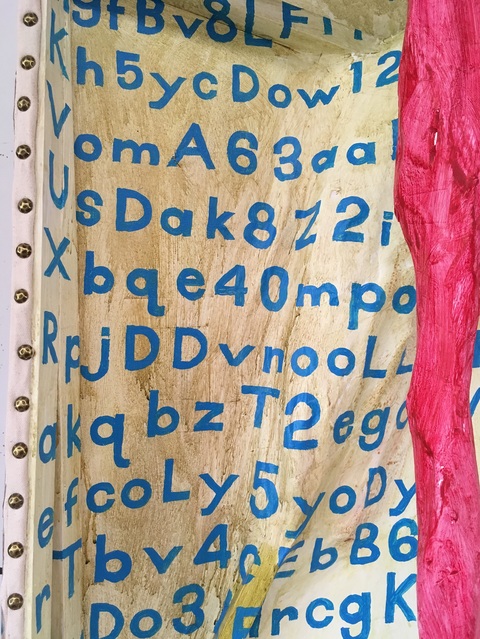 gfBv8LF
h5ycDow12
omA63aa
sDak8Z2i
bqe40mpo
RpjDDvnooL
akqbzT2eg
fcoLy5yoDy
eTbv4cEbB6
rDo3
rcgK
K
V
U
X